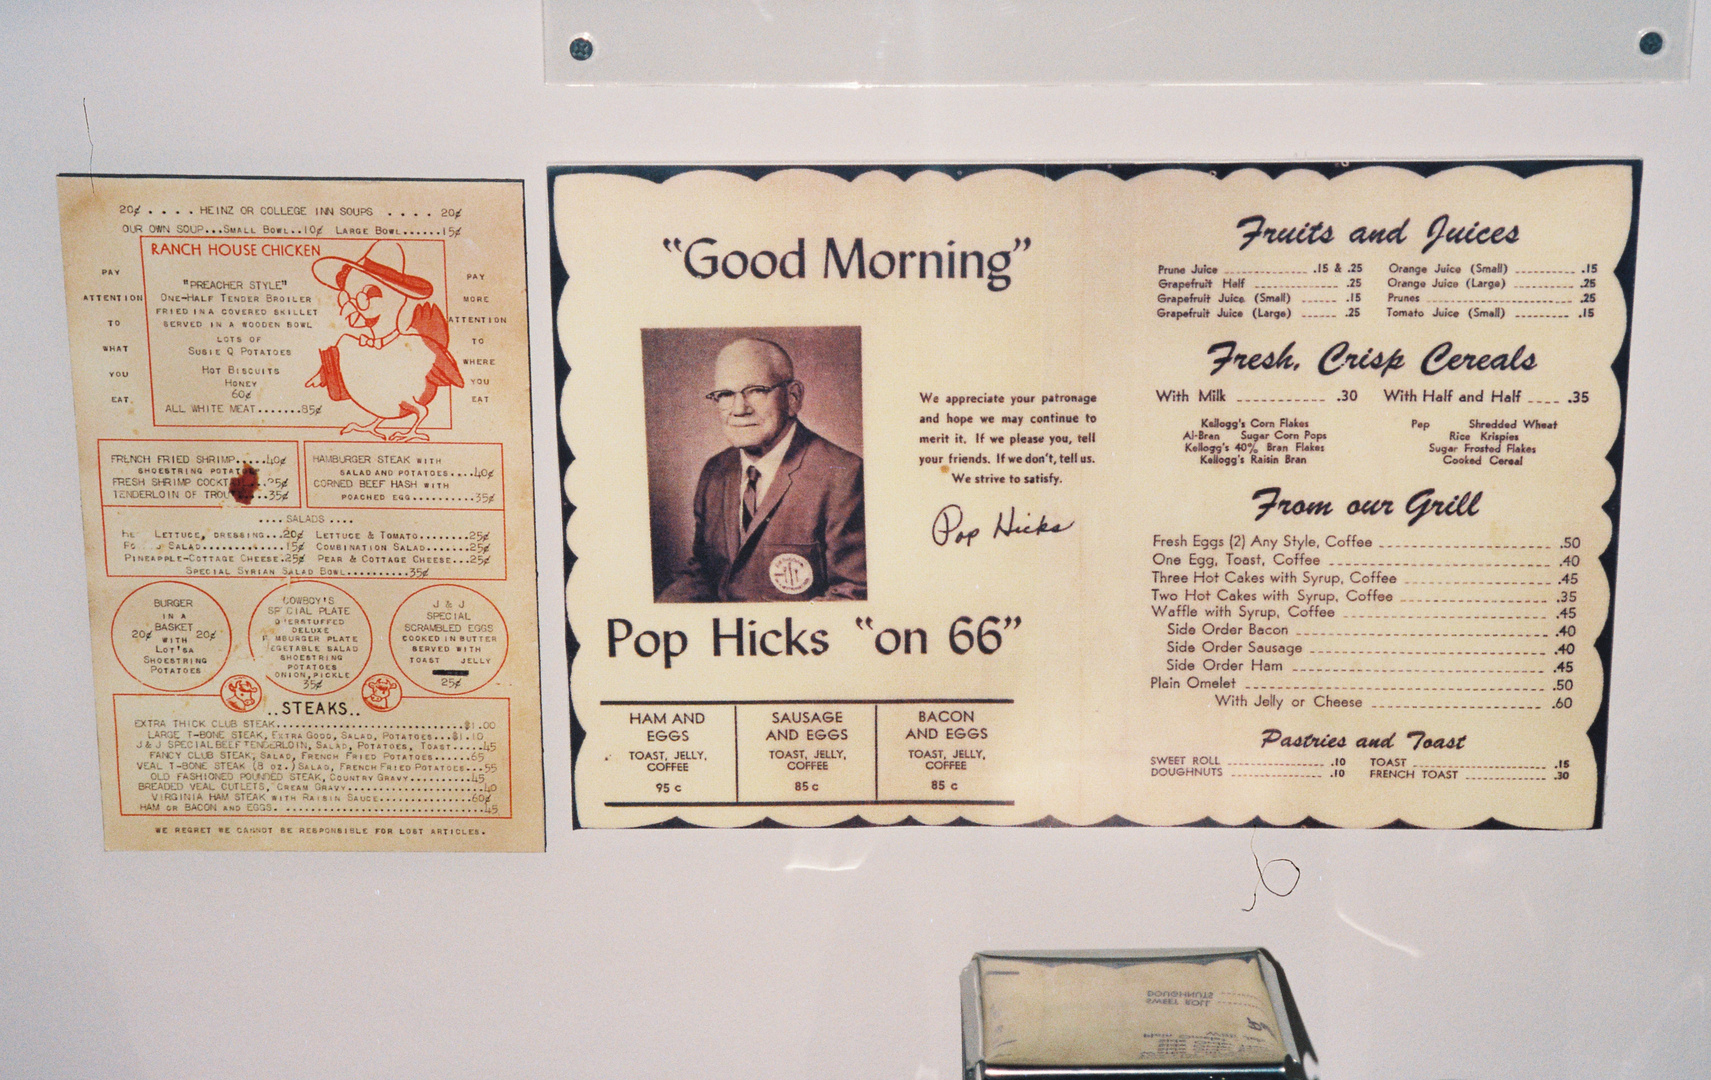 20¢ .... HEINZ OR COLLEGE INN SOUPS .... 20¢
OUR OWN SOUP...SMALL BOWL..10¢ LARGE BOWL......15¢
RANCH HOUSE CHICKEN
"PREACHER STYLE"
ONE-HALF TENDER BROILER
FRIED IN A COVERED SKILLET
SERVED IN A WOODEN BOWL
LOTS OF
SUSIE Q POTATOES
HOT BISCUITS
HONEY
60¢
ALL WHITE MEAT.......85¢
PAY
ATTENTION
TO
WHAT
YOU
EAT.
PAY
MORE
ATTENTION
TO
WHERE
YOU
EAT
FRENCH FRIED SHRIMP.....40¢
SHOESTRING
FRESH SHRIMP 25¢
TENDERLOIN OF 35¢
HAMBURGER STEAK WITH
SALAD AND POTATOES....40¢
CORNED BEEF HASH WITH
POACHED EGG..........35¢
.... SALADS ....
LETTUCE, DRESSING...20¢
SALAD............15¢
PINEAPPLE-COTTAGE CHEESE.25¢
LETTUCE & TOMATO.......25¢
COMBINATION SALAD......25¢
PEAR & COTTAGE CHEESE...25¢
SPECIAL SYRIAN SALAD BOWL..........35¢
BURGER
IN A
BASKET
20¢ WITH 20¢
LOT'SA
SHOESTRING
POTATOES
COWBOY'S
PLATE
DELUXE
PLATE
SALAD
SHOESTRING
POTATOES
ONION, PICKLE
35¢
J & J
SPECIAL
SCRAMBLED EGGS
COOKED IN BUTTER
SERVED WITH
TOAST JELLY
25¢
..STEAKS..
EXTRA THICK CLUB STEAK..............................$1.00
LARGE T-BONE STEAK, EXTRA GOOD, SALAD, POTATOES...$1.10
J & J SPECIAL BEEF TENDERLOIN, SALAD, POTATOES, TOAST.....45
FANCY CLUB STEAK, SALAD, FRENCH FRIED POTATOES......65
VEAL T-BONE STEAK (8 OZ.) SALAD, FRENCH FRIED POTATOES...55
OLD FASHIONED POUNDED STEAK, COUNTRY GRAVY..........45
BREADED VEAL CUTLETS, CREAM GRAVY......................40
VIRGINIA HAM STEAK WITH RAISIN SAUCE...............60¢
HAM OR BACON AND EGGS..................................45
WE REGRET WE CANNOT BE RESPONSIBLE FOR LOST ARTICLES.
"Good Morning"
We appreciate your patronage
and hope we may continue to
merit it. If we please you, tell
your friends. If we don't, tell us.
We strive to satisfy.
Pop Hicks
Pop Hicks "on 66"
HAM AND
EGGS
TOAST, JELLY,
COFFEE
95 c
SAUSAGE
AND EGGS
TOAST, JELLY,
COFFEE
85 c
BACON
AND EGGS
TOAST, JELLY,
COFFEE
85 c
Fruits and Juices
Prune Juice .15 & .25
Grapefruit Half .25
Grapefruit Juice (Small) .15
Grapefruit Juice (Large) .25
Orange Juice (Small) .15
Orange Juice (Large) .25
Prunes .25
Tomato Juice (Small) .15
Fresh, Crisp Cereals
With Milk .30
With Half and Half .35
Kellogg's Corn Flakes
Al-Bran Sugar Corn Pops
Kellogg's 40% Bran Flakes
Kellogg's Raisin Bran
Pep Shredded Wheat
Rice Krispies
Sugar Frosted Flakes
Cooked Cereal
From our Grill
Fresh Eggs (2) Any Style, Coffee .50
One Egg, Toast, Coffee .40
Three Hot Cakes with Syrup, Coffee .45
Two Hot Cakes with Syrup, Coffee .35
Waffle with Syrup, Coffee .45
Side Order Bacon .40
Side Order Sausage .40
Side Order Ham .45
Plain Omelet .50
With Jelly or Cheese .60
Pastries and Toast
SWEET ROLL .10
DOUGHNUTS .10
TOAST .15
FRENCH TOAST .30
DOUGHNUTS
SWEET ROLL